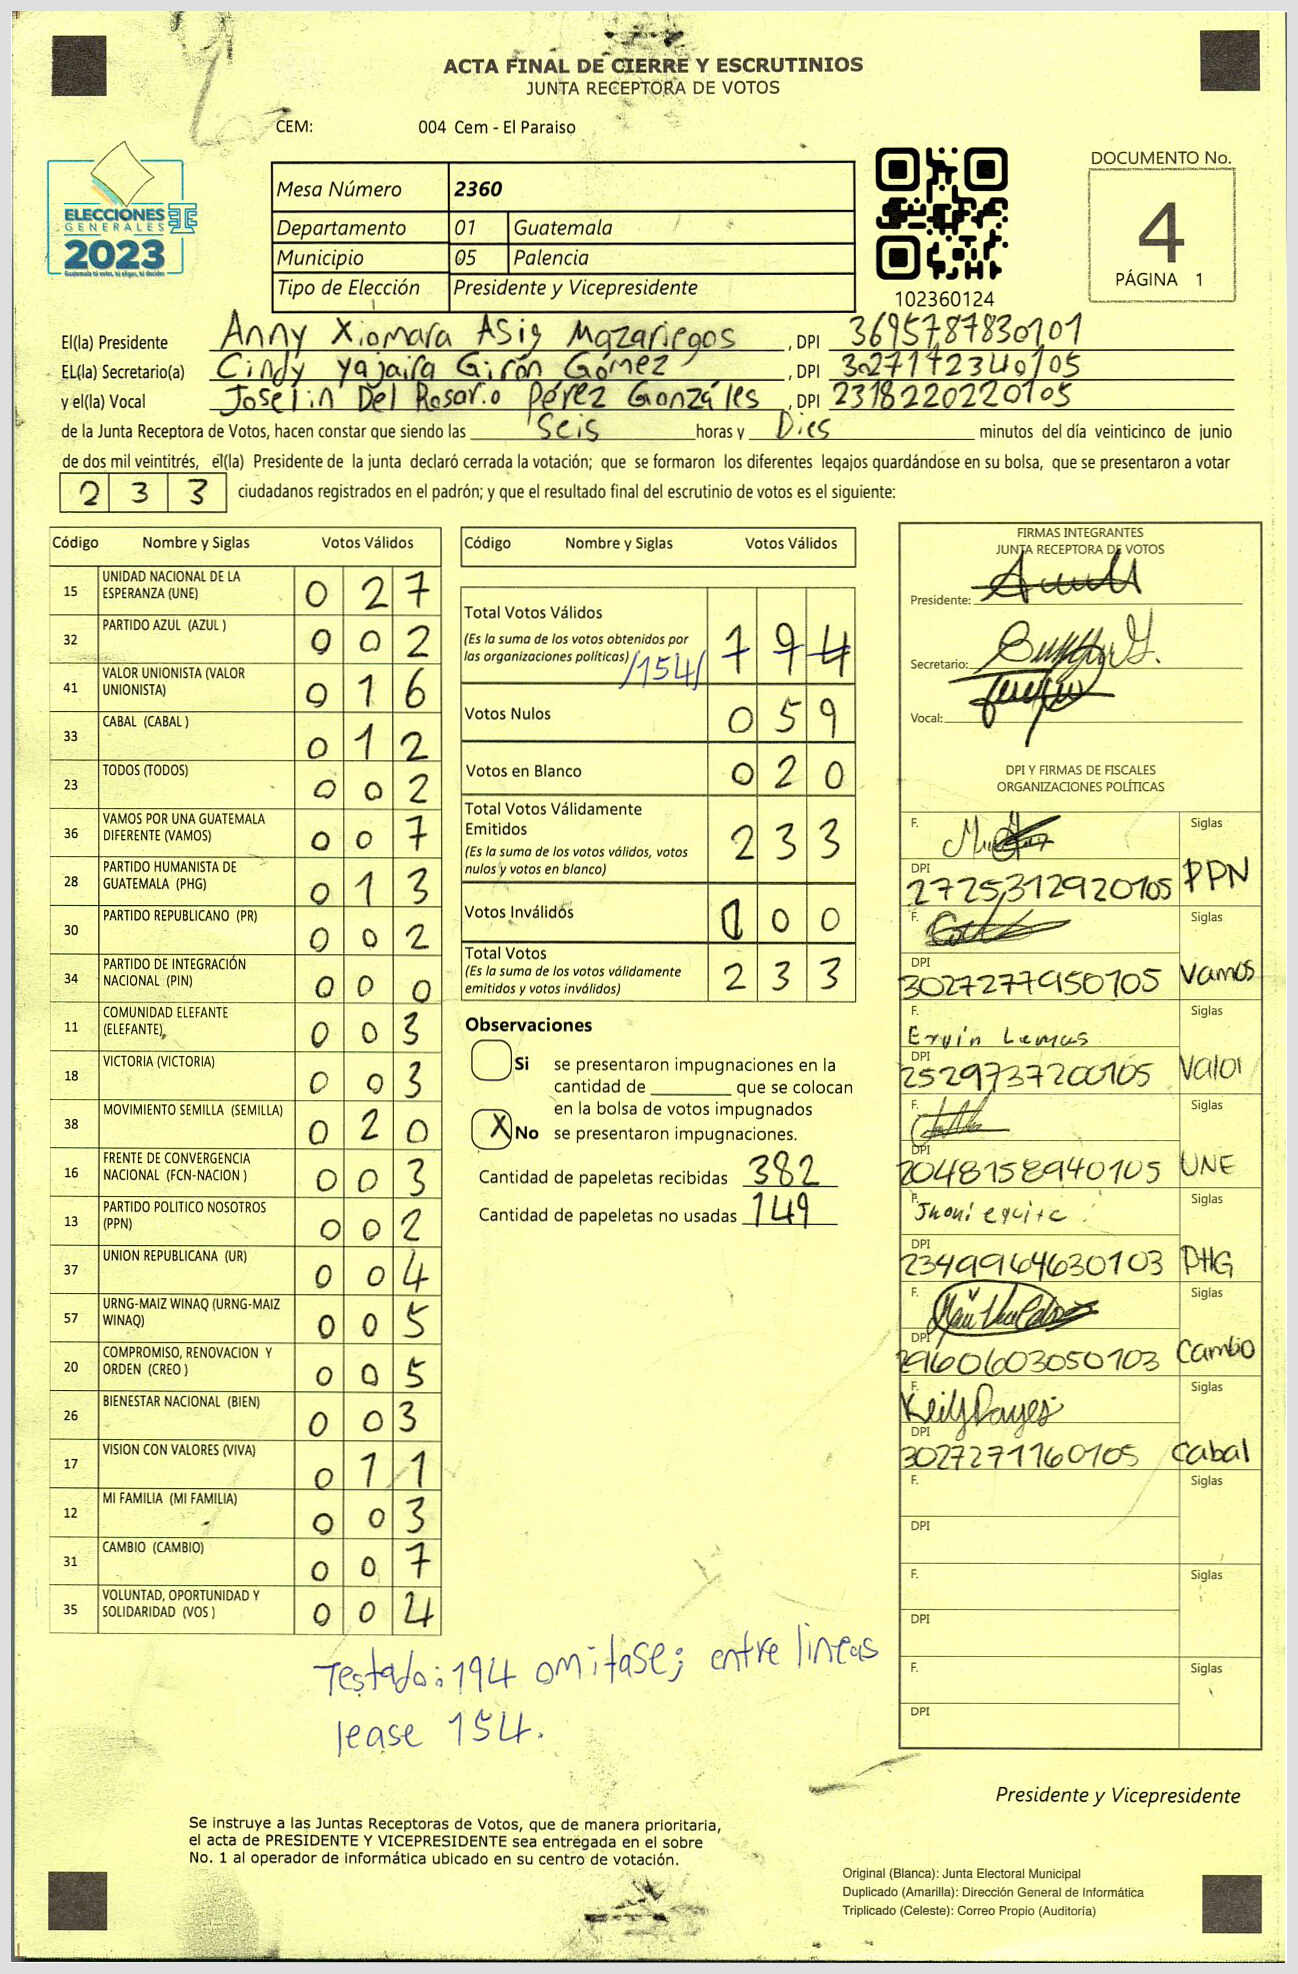 ACTA FINAL DE CIERRE Y ESCRUTINIOS
JUNTA RECEPTORA DE VOTOS
CEM: 004 Cem - El Paraiso
ELECCIONES
GENERALES
2023
Guatemala tú votas, tú eliges, tú decides
Mesa Número 2360
Departamento 01 Guatemala
Municipio 05 Palencia
Tipo de Elección Presidente y Vicepresidente
102360124
DOCUMENTO No.
4
PÁGINA 1
El(la) Presidente Anny Xiomara Asig Mazariegos, DPI 3695787830101
EL(la) Secretario(a) Cindy Yajaira Girón Gómez, DPI 3027172340105
y el(la) Vocal Joselin Del Rosario Pérez Gonzáles, DPI 2318220220105
de la Junta Receptora de Votos, hacen constar que siendo las Seis horas y Dies minutos del día veinticinco de junio
de dos mil veintitrés, el(la) Presidente de la junta declaró cerrada la votación; que se formaron los diferentes legajos guardándose en su bolsa, que se presentaron a votar
2 3 3 ciudadanos registrados en el padrón; y que el resultado final del escrutinio de votos es el siguiente:
Código Nombre y Siglas Votos Válidos
15 UNIDAD NACIONAL DE LA ESPERANZA (UNE) 0 2 7
32 PARTIDO AZUL (AZUL ) 0 0 2
41 VALOR UNIONISTA (VALOR UNIONISTA) 0 1 6
33 CABAL (CABAL ) 0 1 2
23 TODOS (TODOS) 0 0 2
36 VAMOS POR UNA GUATEMALA DIFERENTE (VAMOS) 0 0 7
28 PARTIDO HUMANISTA DE GUATEMALA (PHG) 0 1 3
30 PARTIDO REPUBLICANO (PR) 0 0 2
34 PARTIDO DE INTEGRACIÓN NACIONAL (PIN) 0 0 0
11 COMUNIDAD ELEFANTE (ELEFANTE) 0 0 3
18 VICTORIA (VICTORIA) 0 0 3
38 MOVIMIENTO SEMILLA (SEMILLA) 0 2 0
16 FRENTE DE CONVERGENCIA NACIONAL (FCN-NACION ) 0 0 3
13 PARTIDO POLITICO NOSOTROS (PPN) 0 0 2
37 UNION REPUBLICANA (UR) 0 0 4
57 URNG-MAIZ WINAQ (URNG-MAIZ WINAQ) 0 0 5
20 COMPROMISO, RENOVACION Y ORDEN (CREO ) 0 0 5
26 BIENESTAR NACIONAL (BIEN) 0 0 3
17 VISION CON VALORES (VIVA) 0 1 1
12 MI FAMILIA (MI FAMILIA) 0 0 3
31 CAMBIO (CAMBIO) 0 0 7
35 VOLUNTAD, OPORTUNIDAD Y SOLIDARIDAD (VOS ) 0 0 4
Código Nombre y Siglas Votos Válidos
Total Votos Válidos 1 9 4
(Es la suma de los votos obtenidos por
las organizaciones políticas) /154/
Votos Nulos 0 5 9
Votos en Blanco 0 2 0
Total Votos Válidamente
Emitidos 2 3 3
(Es la suma de los votos válidos, votos
nulos y votos en blanco)
Votos Inválidos 0 0 0
Total Votos 2 3 3
(Es la suma de los votos válidamente
emitidos y votos inválidos)
Observaciones
Si se presentaron impugnaciones en la
cantidad de ________ que se colocan
en la bolsa de votos impugnados
X No se presentaron impugnaciones.
Cantidad de papeletas recibidas 382
Cantidad de papeletas no usadas 149
FIRMAS INTEGRANTES
JUNTA RECEPTORA DE VOTOS
Presidente:
Secretario:
Vocal:
DPI Y FIRMAS DE FISCALES
ORGANIZACIONES POLÍTICAS
F. Siglas
DPI 2725312920105 PPN
F. Siglas
DPI 3027277950105 Vamos
F. Ervin Lemus Siglas
DPI 2529737200105 Valor
F. Siglas
DPI 2048158940105 UNE
F. Siglas
DPI 2349964630103 PHG
F. Siglas
DPI 2960603050103 Cambio
F. Siglas
DPI 3027271160105 Cabal
F. Siglas
DPI
F. Siglas
DPI
F. Siglas
DPI
Testado: 194 omitase; entre lineas
lease 154.
Presidente y Vicepresidente
Se instruye a las Juntas Receptoras de Votos, que de manera prioritaria,
el acta de PRESIDENTE Y VICEPRESIDENTE sea entregada en el sobre
No. 1 al operador de informática ubicado en su centro de votación.
Original (Blanca): Junta Electoral Municipal
Duplicado (Amarilla): Dirección General de Informática
Triplicado (Celeste): Correo Propio (Auditoría)